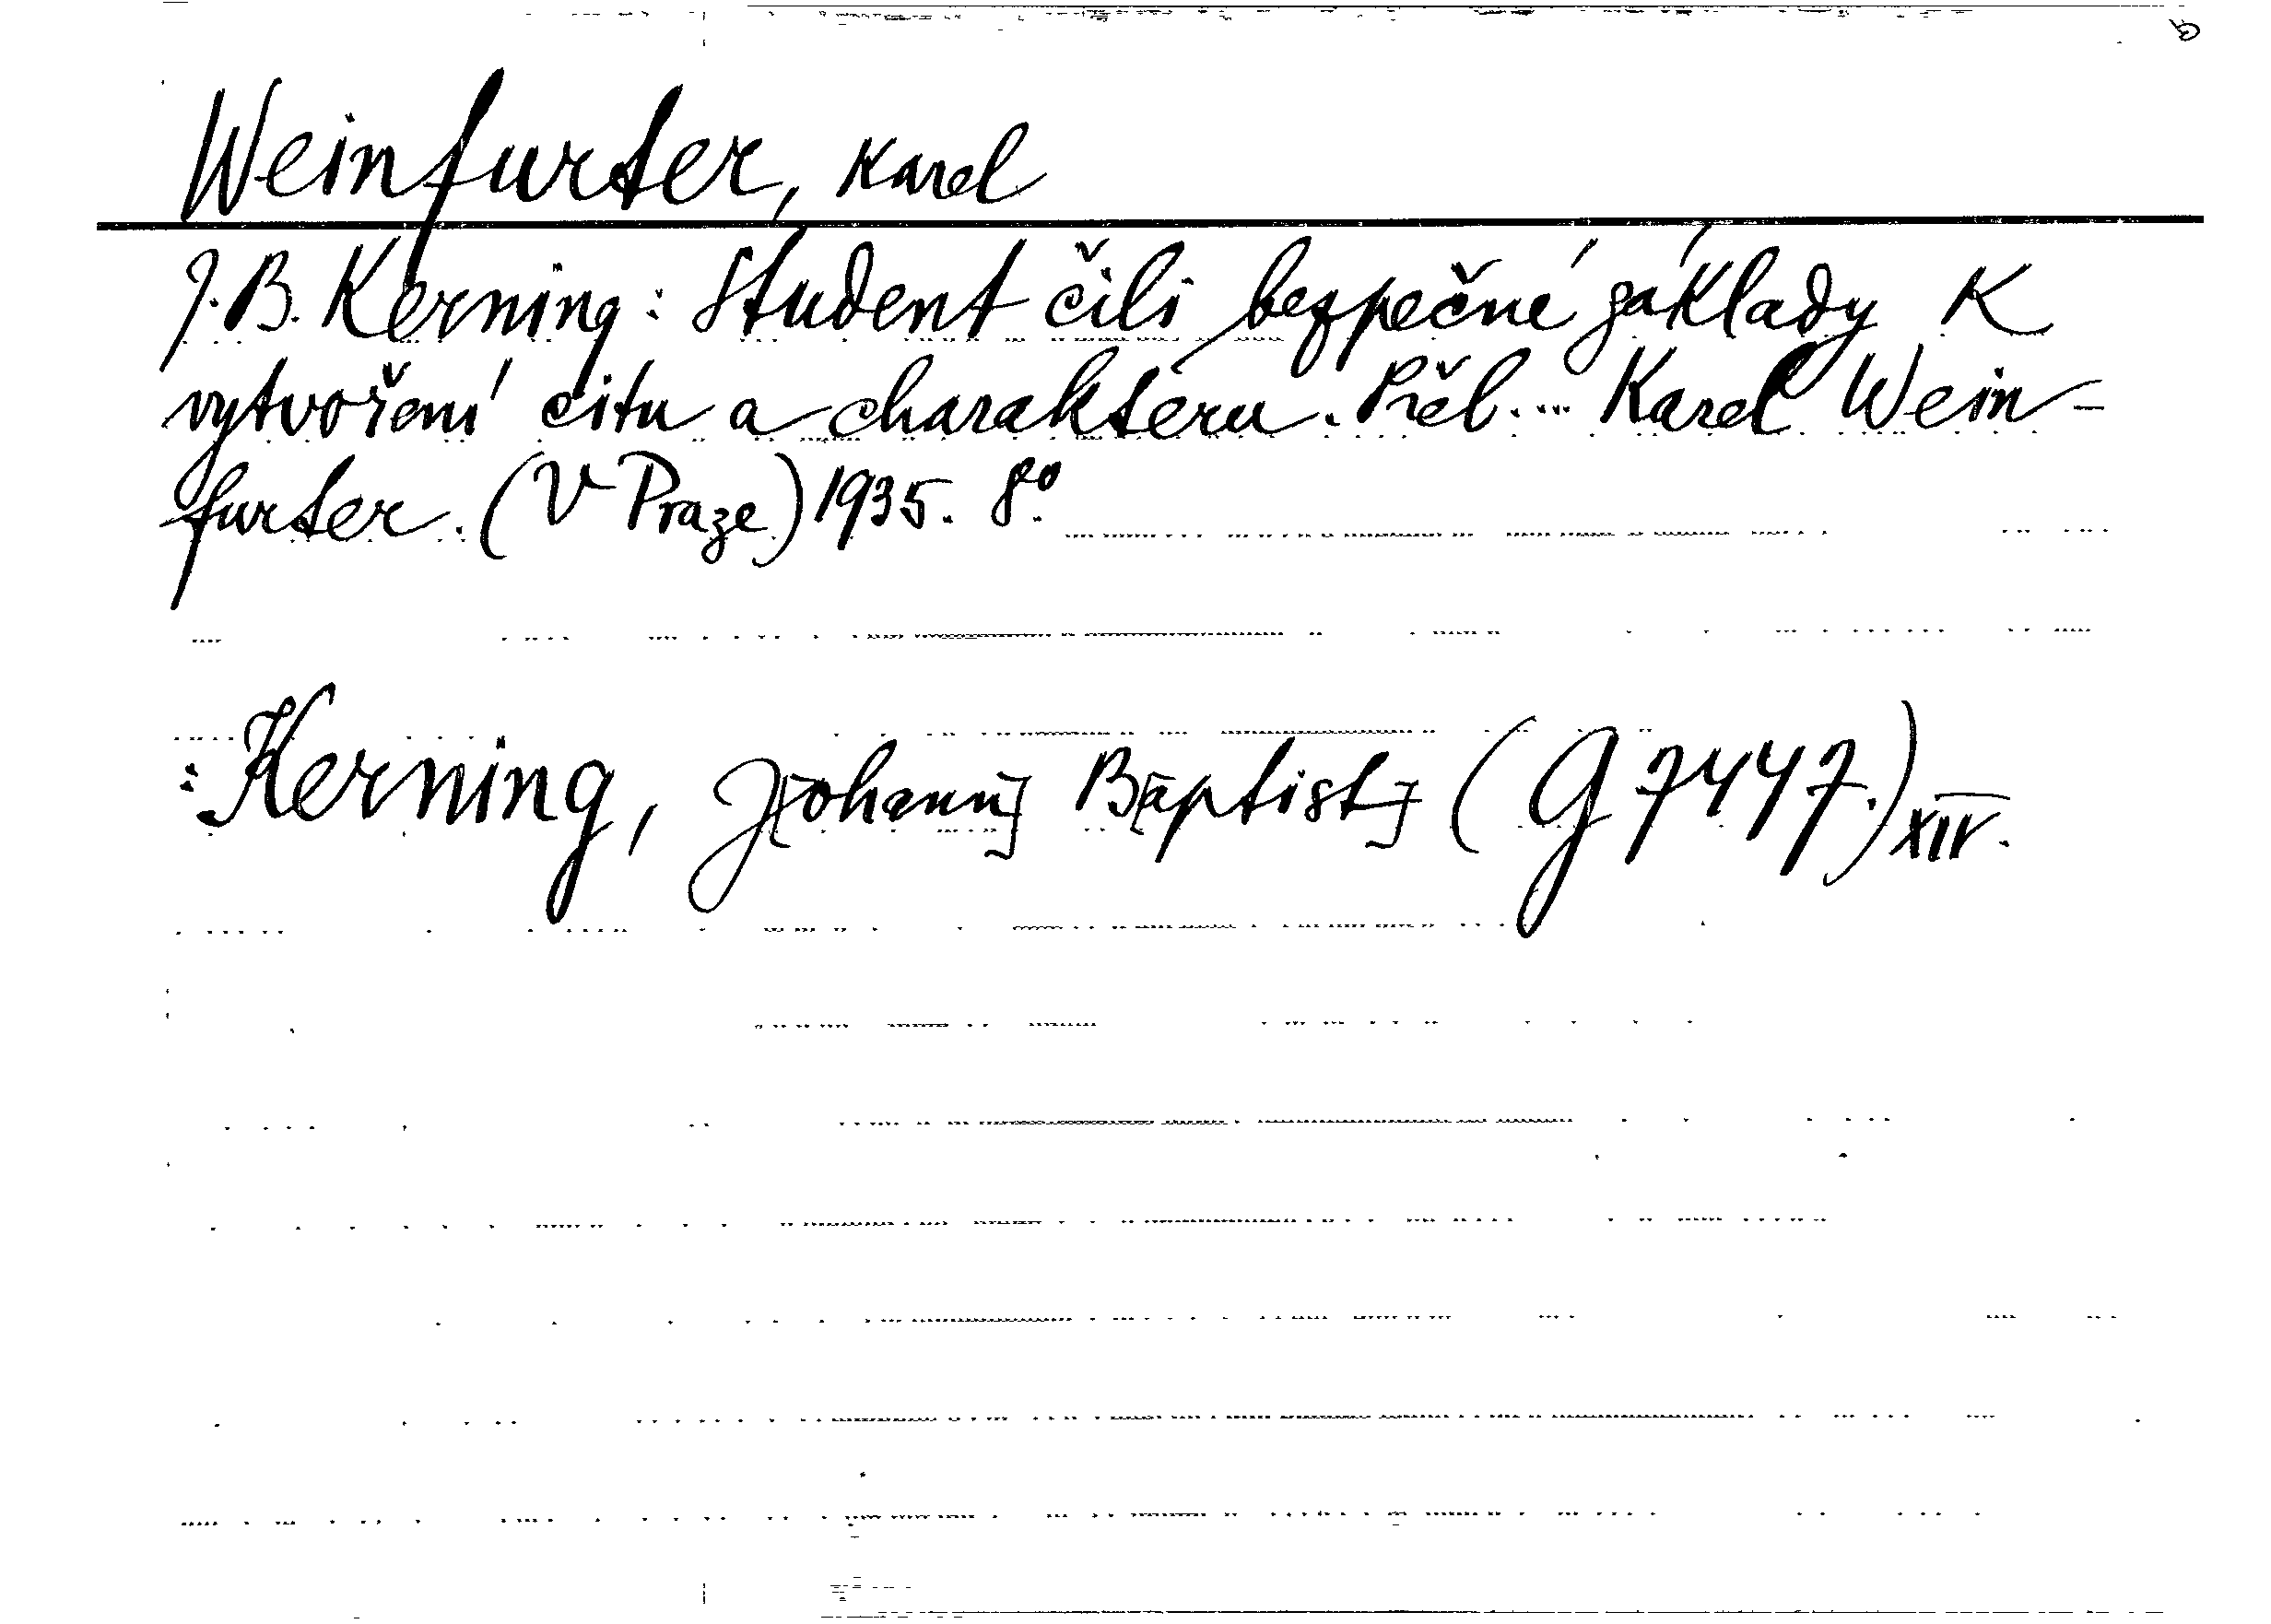 Weinfurter, Karel
J. B. Kerning: Student čili bezpečné základy k
vytvoření citu a charakteru. Přel. ... Karel Wein-
furter. (V Praze) 1935. 8°.
: Kerning, J[ohann] B[aptist] (G 7447.) XIV.